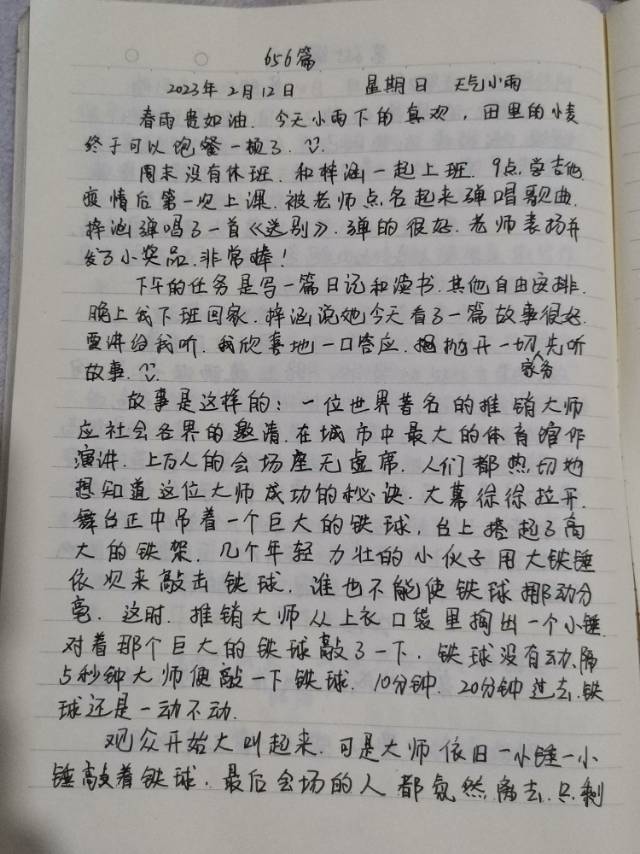 656篇
2023年2月12日 星期日 天气小雨
春雨贵如油.今天小雨下的真欢,田里的小麦
终于可以饱餐一顿了.
周末没有休班.和梓涵一起上班.9点.学吉他
疫情后第一次上课.被老师点名起来弹唱歌曲.
梓涵弹唱了一首《送别》.弹的很好.老师表扬并
发了小奖品.非常棒!
下午的任务是写一篇日记和读书.其他自由安排.
晚上我下班回家.梓涵说她今天看了一篇故事很好.
要讲给我听.我欣喜地一口答应.抛开一切家务先听
故事.
故事是这样的:一位世界著名的推销大师
应社会各界的邀请.在城市中最大的体育馆作
演讲.上万人的会场座无虚席.人们都热切地
想知道这位大师成功的秘诀.大幕徐徐拉开.
舞台正中吊着一个巨大的铁球,台上搭起了高
大的铁架.几个年轻力壮的小伙子用大铁锤
依次来敲击铁球.谁也不能使铁球挪动分
毫.这时.推销大师从上衣口袋里掏出一个小锤.
对着那个巨大的铁球敲了一下.铁球没有动.隔
5秒钟大师便敲一下铁球.10分钟.20分钟过去.铁
球还是一动不动.
观众开始大叫起来.可是大师依旧一小锤一小
锤敲着铁球.最后会场的人都氛然离去.只剩